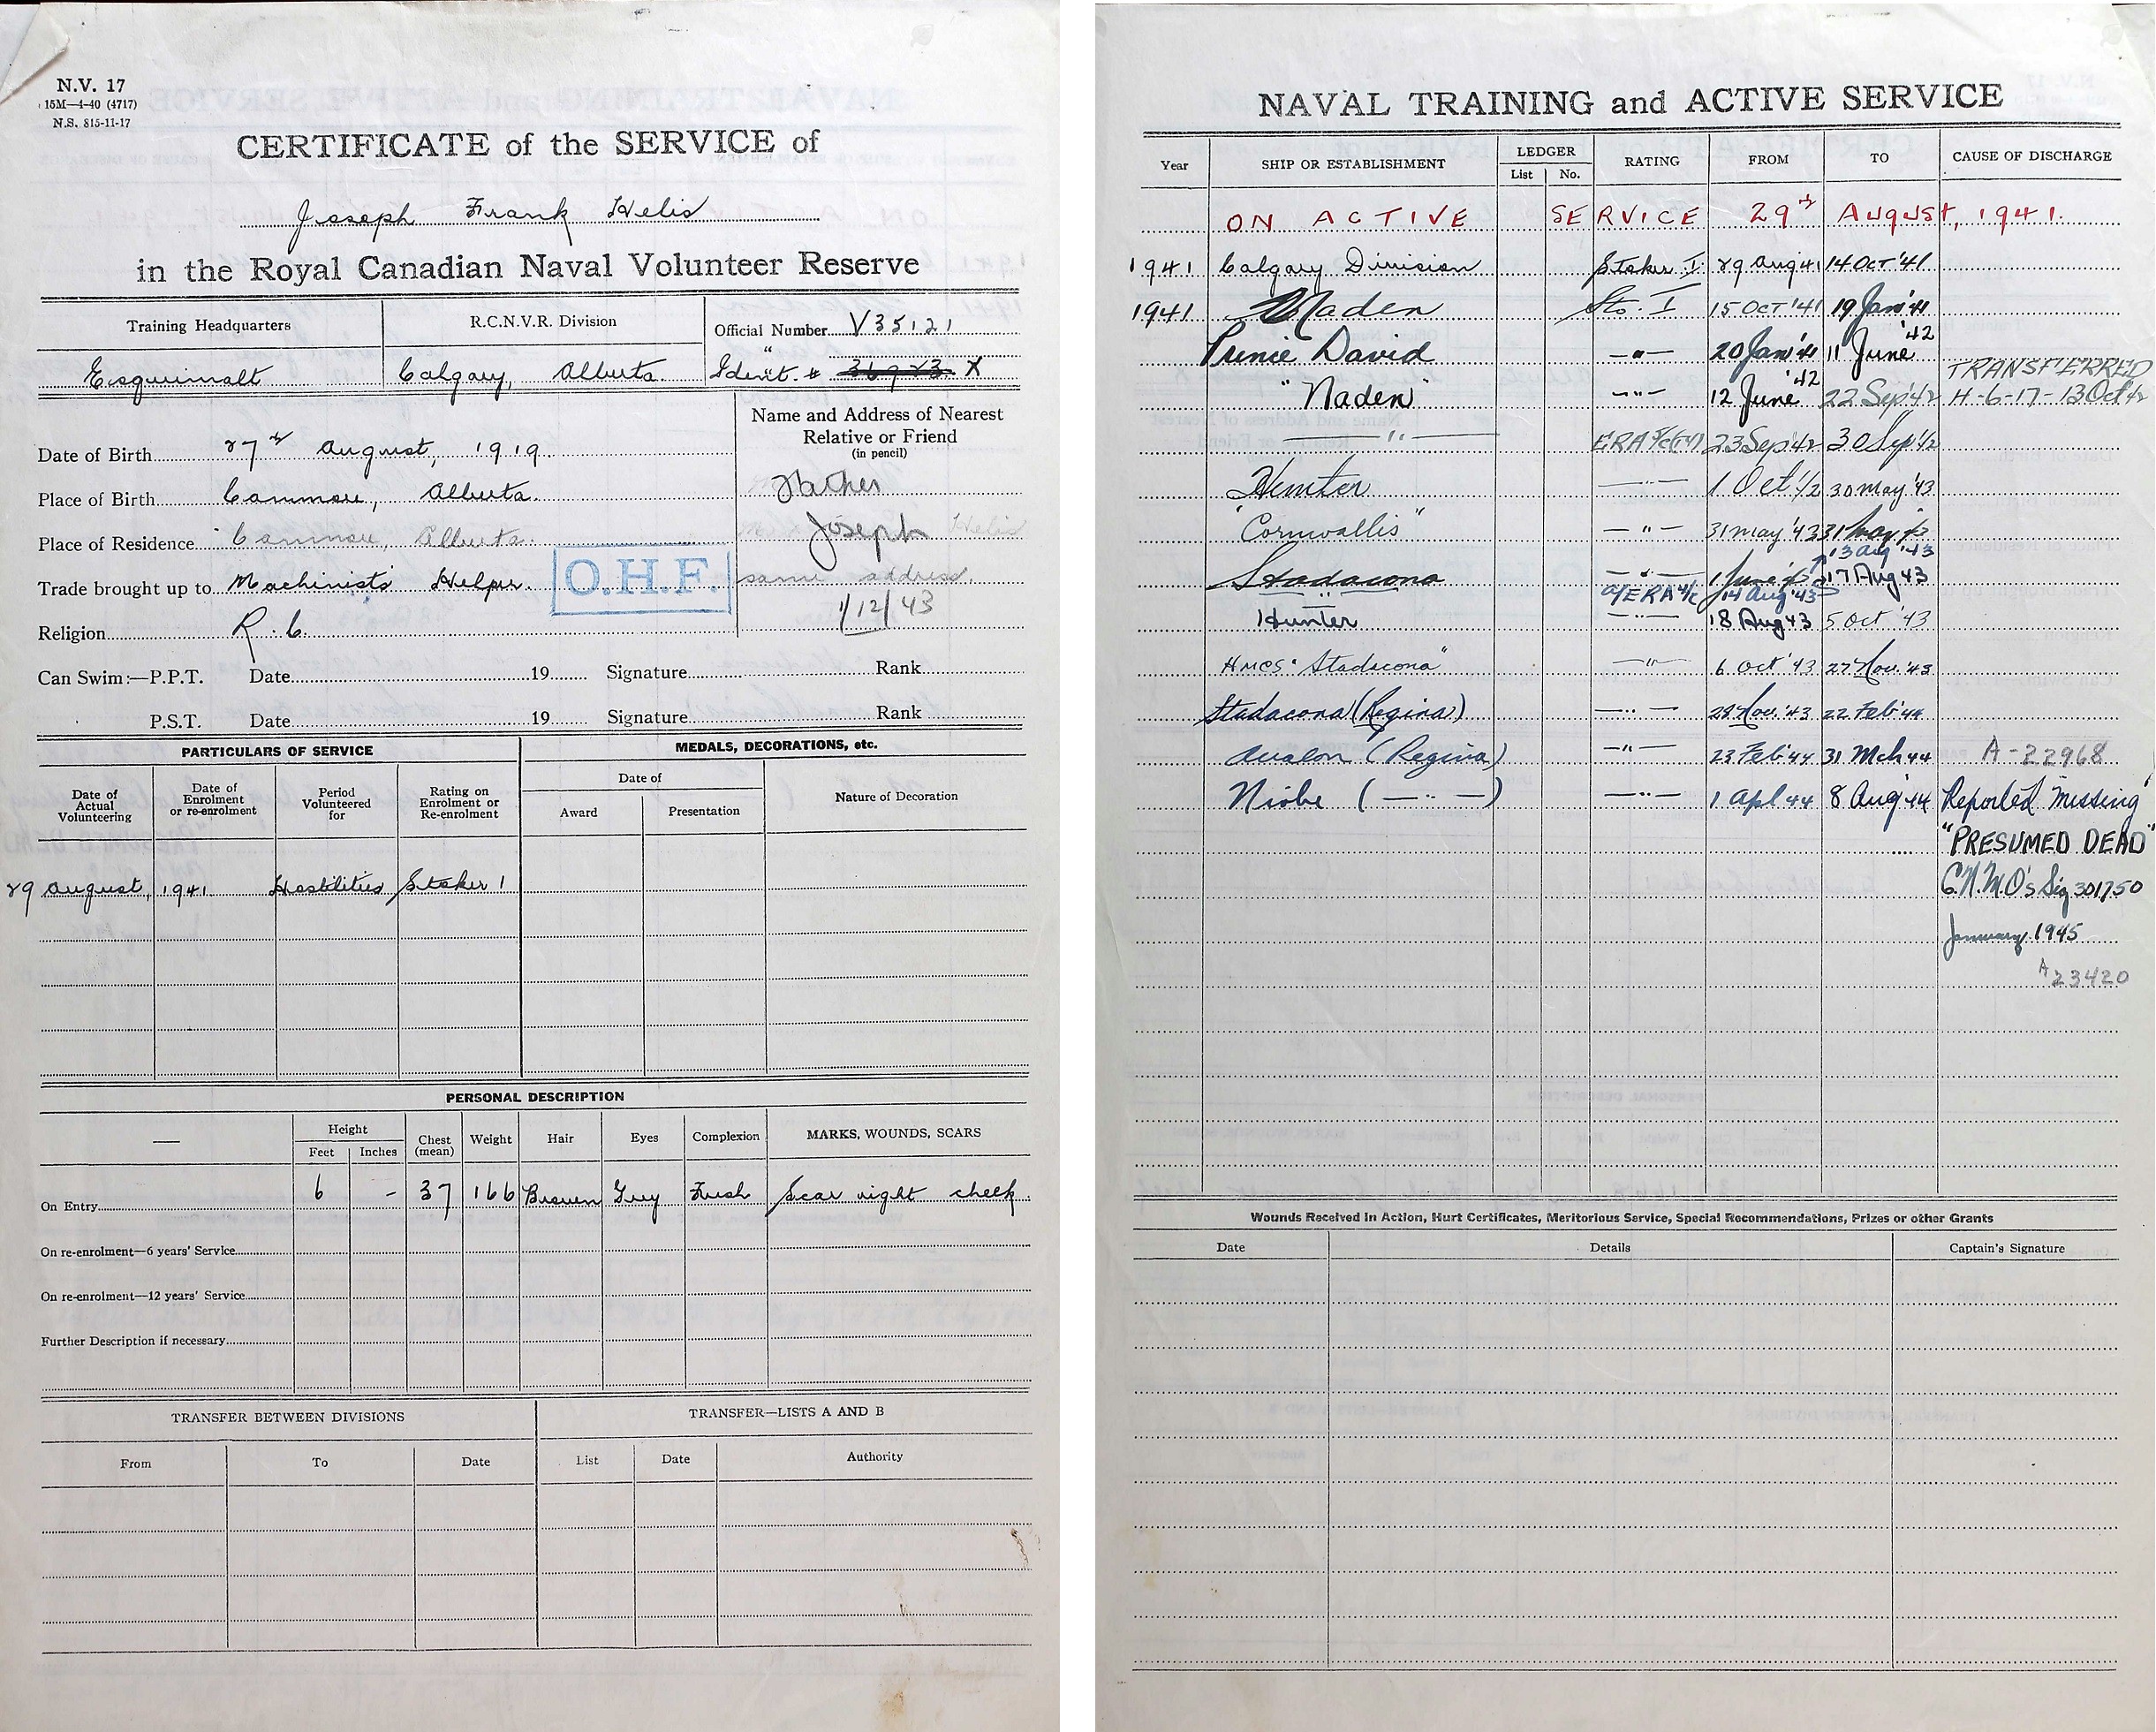 N.V. 17
15M—4-40 (4717)
N.S. 815-11-17
CERTIFICATE of the SERVICE of
Joseph Frank Helis
in the Royal Canadian Naval Volunteer Reserve
Training Headquarters R.C.N.V.R. Division Official Number V35121
Esquimalt Calgary, Alberta. " Ident. # X
Name and Address of Nearest
Relative or Friend
(in pencil)
Date of Birth 27th August, 1919
Place of Birth Canmore, Alberta. Father
Place of Residence Canmore, Alberta. Joseph Helis
Trade brought up to Machinists Helper. O.H.F. same address
1/12/43
Religion R.C.
Can Swim:—P.P.T. Date 19 Signature Rank
P.S.T. Date 19 Signature Rank
PARTICULARS OF SERVICE MEDALS, DECORATIONS, etc.
Date of Actual Volunteering Date of Enrolment or re-enrolment Period Volunteered for Rating on Enrolment or Re-enrolment Date of Award Presentation Nature of Decoration
29 August, 1941 Hostilities Stoker I
PERSONAL DESCRIPTION
— Height Feet Inches Chest (mean) Weight Hair Eyes Complexion MARKS, WOUNDS, SCARS
On Entry 6 - 37 166 Brown Grey Fresh Scar right cheek.
On re-enrolment—6 years' Service
On re-enrolment—12 years' Service
Further Description if necessary
TRANSFER BETWEEN DIVISIONS TRANSFER—LISTS A AND B
From To Date List Date Authority
NAVAL TRAINING and ACTIVE SERVICE
Year SHIP OR ESTABLISHMENT LEDGER List No. RATING FROM TO CAUSE OF DISCHARGE
ON ACTIVE SERVICE 29th AUGUST, 1941.
1941 Calgary Division Stoker I 29 Aug 41 14 Oct '41
1941 Naden Sto. I 15 Oct '41 19 Jan '41
Prince David —"— 20 Jan '41 11 June '42
"Naden" —"— 12 June '42 22 Sep '42 TRANSFERRED H-6-17-13 Oct 42
—"— ERA 23 Sep 42 30 Sep '42
Hunter —"— 1 Oct '42 30 May '43
"Cornwallis" —"— 31 May '43 31 May 43
Stadacona —"— 1 June 43 13 Aug '43
—"— A/ERA 4/c 14 Aug '43 17 Aug 43
Hunter —"— 18 Aug 43 5 Oct '43
HMCS "Stadacona" —"— 6 Oct '43 27 Nov. '43
Stadacona (Regina) —"— 28 Nov. '43 22 Feb '44
Avalon (Regina) —"— 23 Feb '44 31 Mch 44 A-22968
Niobe (—"—) —"— 1 Apl 44 8 Aug '44 Reported "Missing"
"PRESUMED DEAD"
C.N.M.O's Sig 301750
January 1945
A 23420
Wounds Received in Action, Hurt Certificates, Meritorious Service, Special Recommendations, Prizes or other Grants
Date Details Captain's Signature